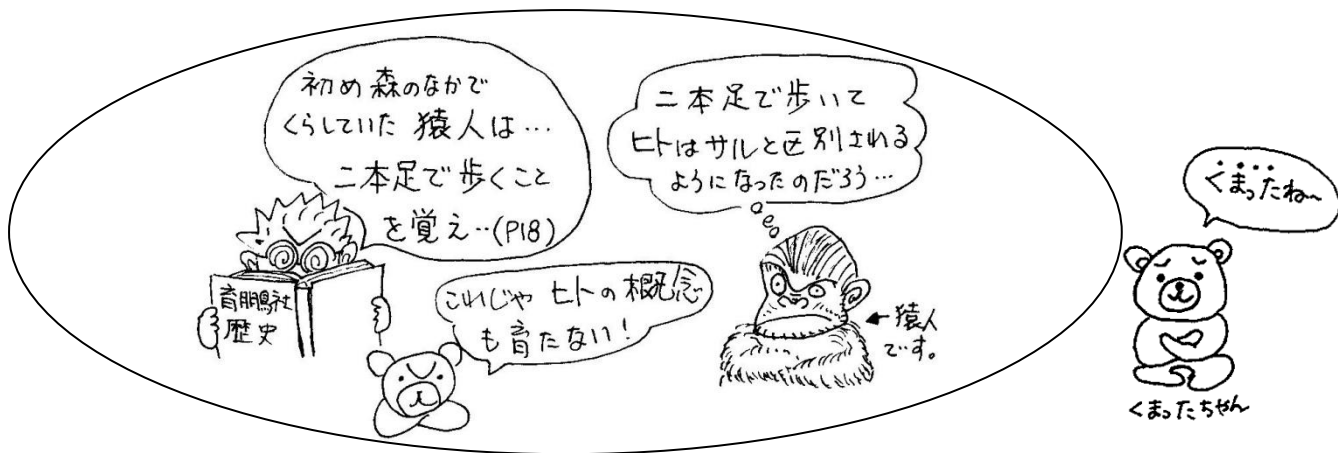 初め森のなかで
くらしていた猿人は…
二本足で歩くこと
を覚え‥(P18)
育鵬社
歴史
これじゃ ヒトの概念
も育たない！
二本足で歩いて
ヒトはサルと区別される
ようになったのだろう…
←猿人
です。
くまったね〜
くまったちゃん